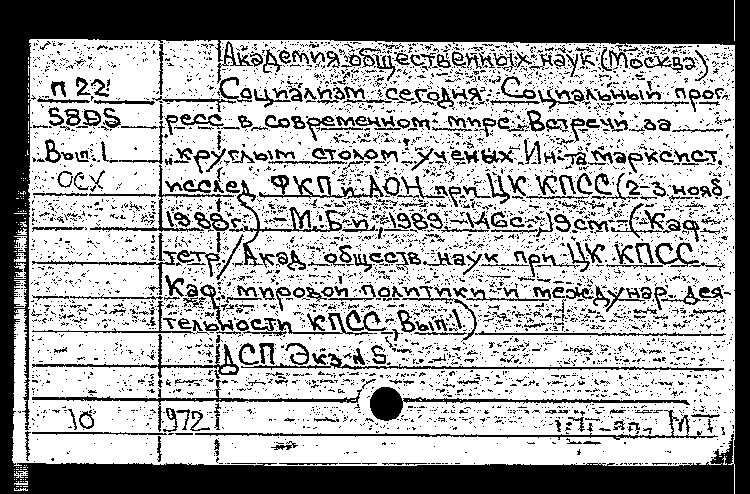 Академия общественных наук (Москва)
П 22 Социализм сегодня. Социальный прог-
S8DS ресс в современном мире. Встречи за
Вып. 1 "круглым столом" ученых Ин-та марксист.
ОСХ исслед. ФКП и АОН при ЦК КПСС (2-3 нояб.
1988г.) - М.: Б-и, 1989. - 146с.; 19см. - (Каф.
тетр / Акад. обществ. наук при ЦК КПСС
Каф. мировой политики и междунар. дея-
тельности КПСС, Вып 1)
ДСП Экз. N S
10 972 М.Т.